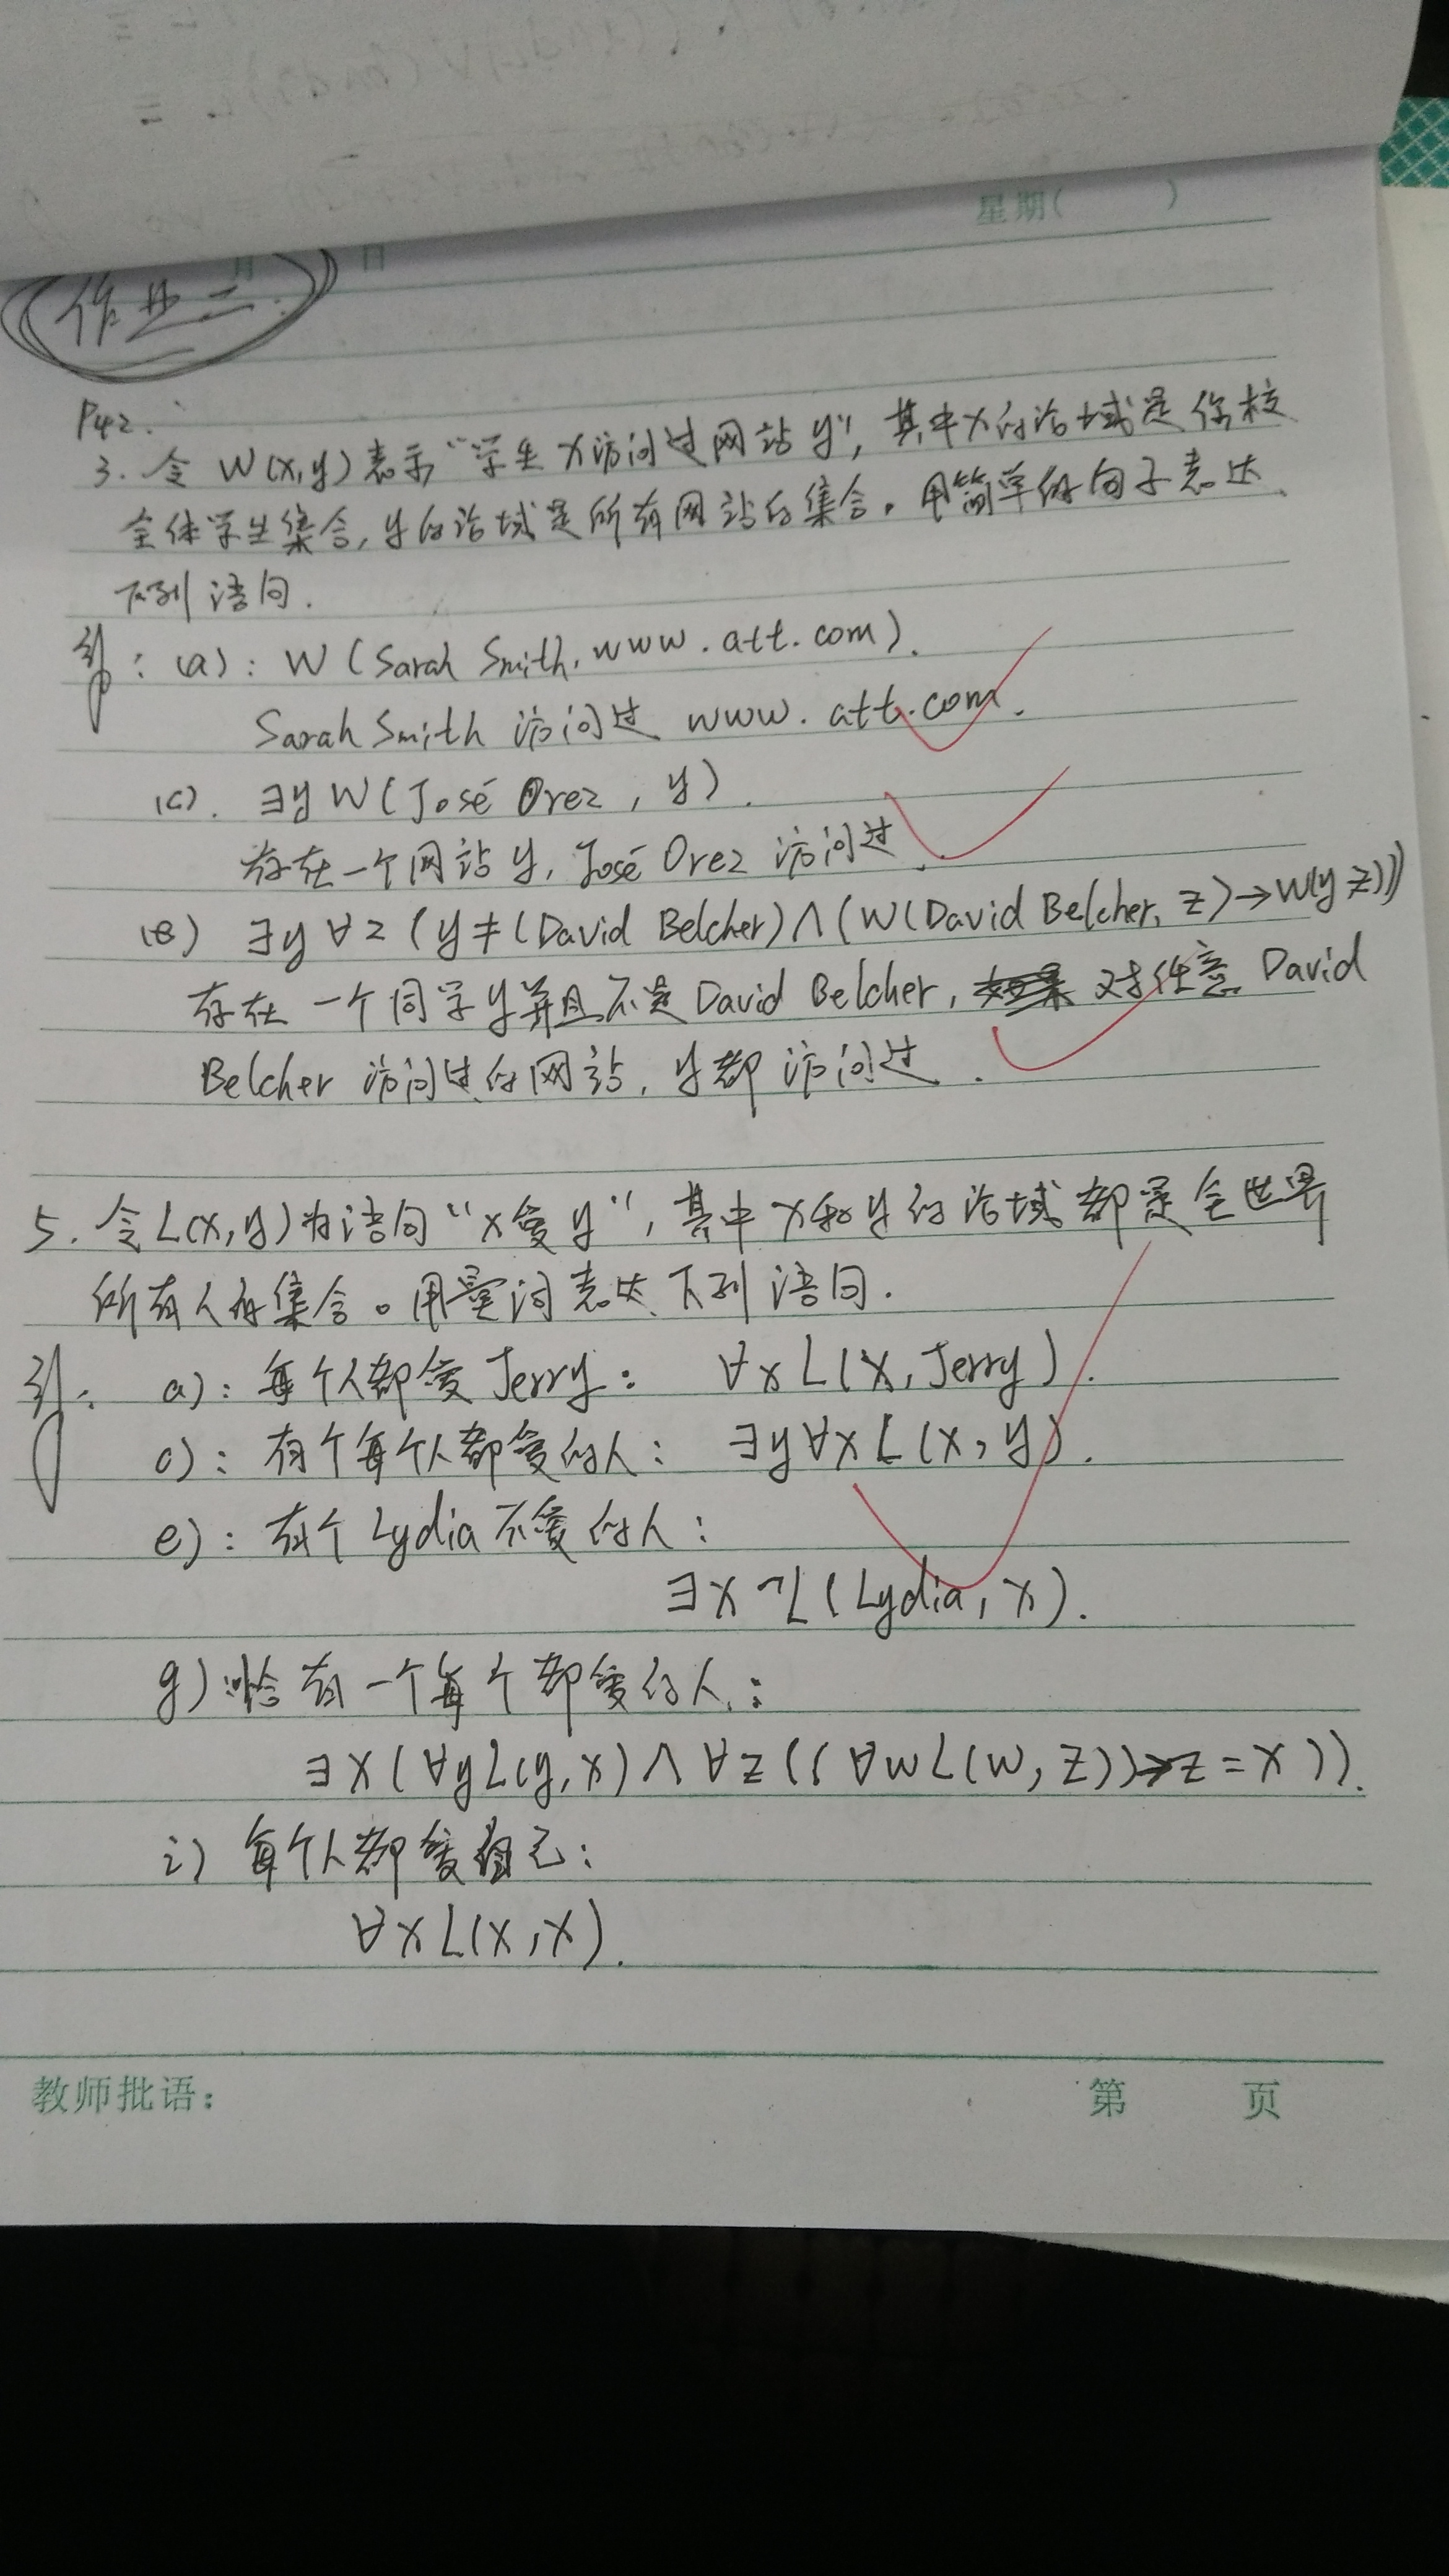 星期( )
月 日
作业二.
P42.
3. 令 W(x,y)表示“学生x访问过网站y”, 其中x的论域是你校
全体学生集合, y的论域是所有网站的集合。用简单的句子表达
下列语句.
(a): W (Sarah Smith, www.att.com).
Sarah Smith 访问过 www.att.com.
(c). ∃y W(José Orez, y).
存在一个网站y, José Orez 访问过.
(e) ∃y∀z(y≠(David Belcher)∧(W(David Belcher, z)→W(y z)))
存在一个同学y并且不是David Belcher, 对任意David
Belcher 访问过的网站, y都访问过.
5. 令L(x,y)为语句“x爱y”, 其中x和y的论域都是全世界
所有人的集合。用量词表达下列语句.
a): 每个人都爱Jerry: ∀x L(x, Jerry).
c): 有个每个人都爱的人: ∃y∀x L(x, y).
e): 有个Lydia不爱的人:
∃x ¬L(Lydia, x).
g) 恰有一个每个都爱的人:
∃x(∀yL(y,x)∧∀z((∀wL(w,z))→z=x)).
i) 每个人都爱自己:
∀x L(x,x).
教师批语: 第 页